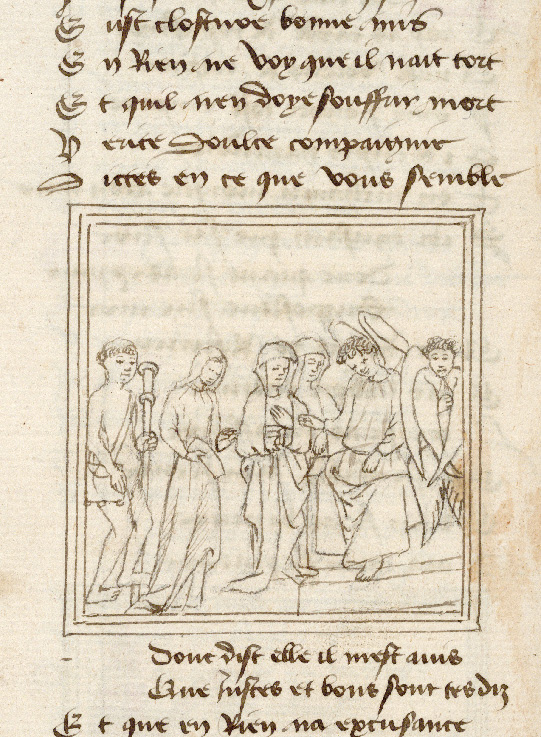 E ust closturoe bonne mis
E n Rien ne voy que il nait tort
E t quil nen doye souffrir mort
V erite Doulce compaignie
D ictes en ce que vous semble
Dont dist elle il mest aius
Que Justes et bons sont tes diz
E t que en Rien na excusance